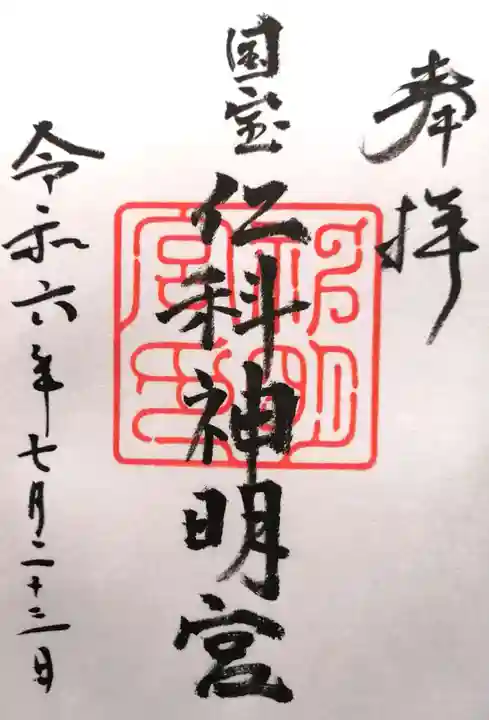 奉拝
国宝
仁科神明宮
令和六年七月二十三日